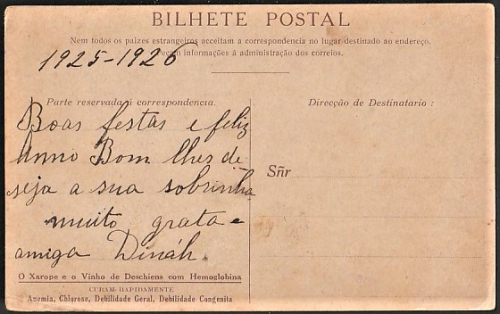 BILHETE POSTAL
Nem todos os paizes estrangeiros acceitam a correspondencia no logar destinado ao endereço.
Peçam informações á administração dos correios.
1925-1926
Parte reservada á correspondencia.
Direcção de Destinatario :
Boas festas e feliz
Anno Bom lhes de
seja a sua sobrinha
muito grata e
amiga Dináh.
Sñr
O Xarope e o Vinho de Deschiens com Hemoglobina
CURAM RAPIDAMENTE
Anemia, Chlorose, Debilidade Geral, Debilidade Congenita